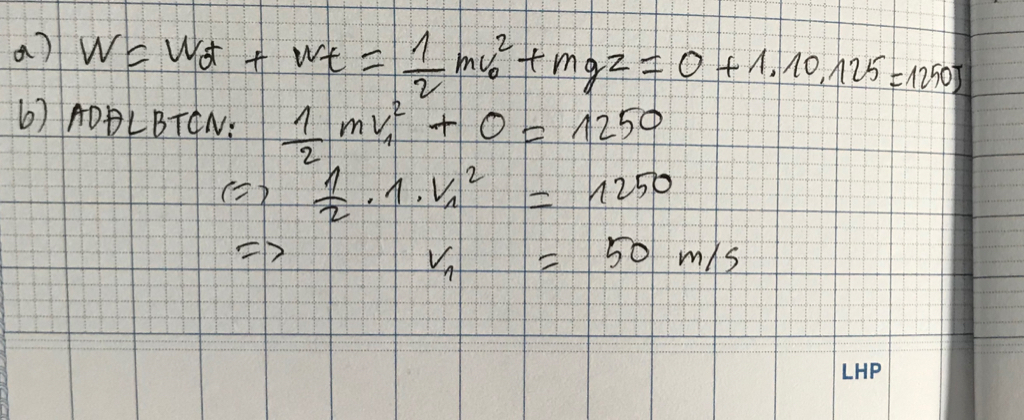 a) W = Wđ + Wt = 1/2 mv₀² + mgz = 0 + 1.10.125 = 1250J
b) ADĐLBTCN: 1/2 mv₁² + 0 = 1250
(=> 1/2 . 1 . v₁² = 1250
=> v₁ = 50 m/s
LHP